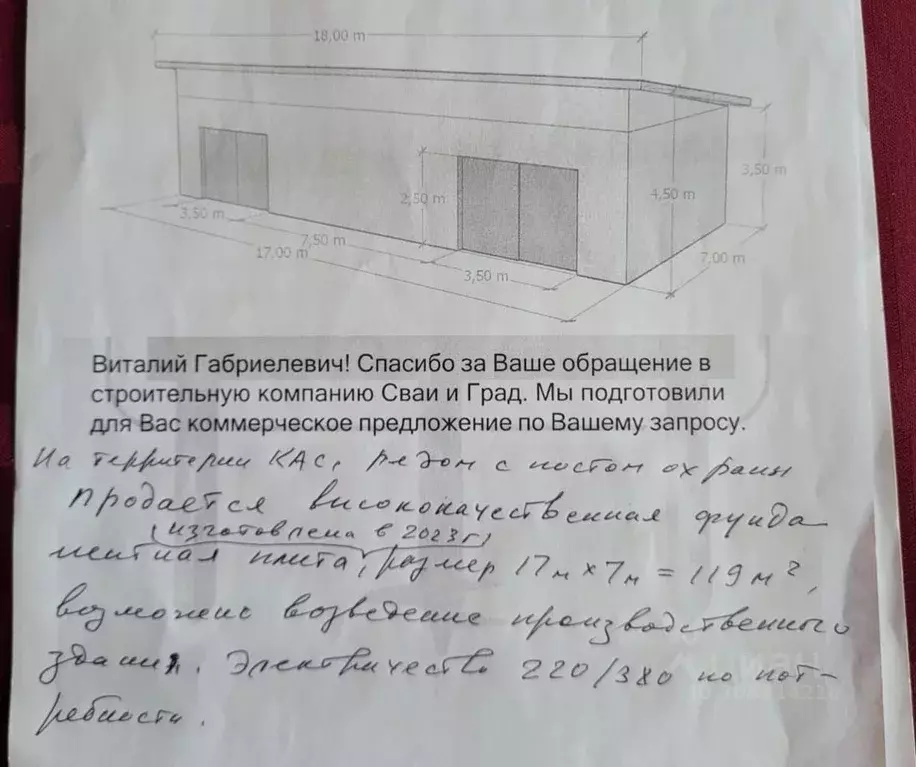 18,00 m
3,50 m
2,50 m
4,50 m
3,50 m
7,50 m
17.00 m
3,50 m
7,00 m
Виталий Габриелевич! Спасибо за Ваше обращение в
строительную компанию Сваи и Град. Мы подготовили
для Вас коммерческое предложение по Вашему запросу.
На территории КАС, рядом с постом охраны
продается высококачественная фунда
(изготовлена в 2023г)
ментная плита, размер 17м х 7м = 119 м²,
возможно возведение производственного
здания. Электричество 220/380 по пот-
ребности.